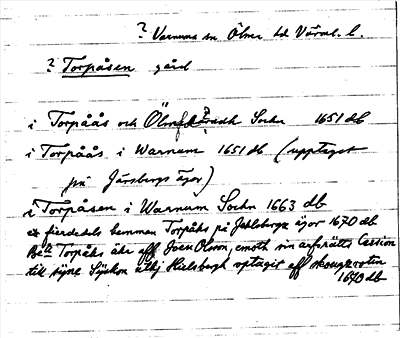 ? Varnums sn Ölme hd Värml. l.
? Torpåsen gård
i Torpåås och Ölme Sochn 1651 db
i Torpåås i Warnum 1651 db (upptaget
på Järsbergs ägor)
i Torpåsen i Warnum Sochn 1663 db
et fierdedels hemman Torpåhs på Jahlsbergz ägor 1670 db
Be:te Torpåhs ähr aff Joen Olsson, emoth sin arfsrätts Cession
till sijne Sijskon uthj Hielsbergh optagit aff skougzrotin
1670 db